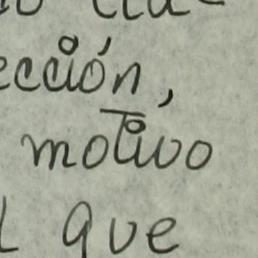 ección,
motivo
que